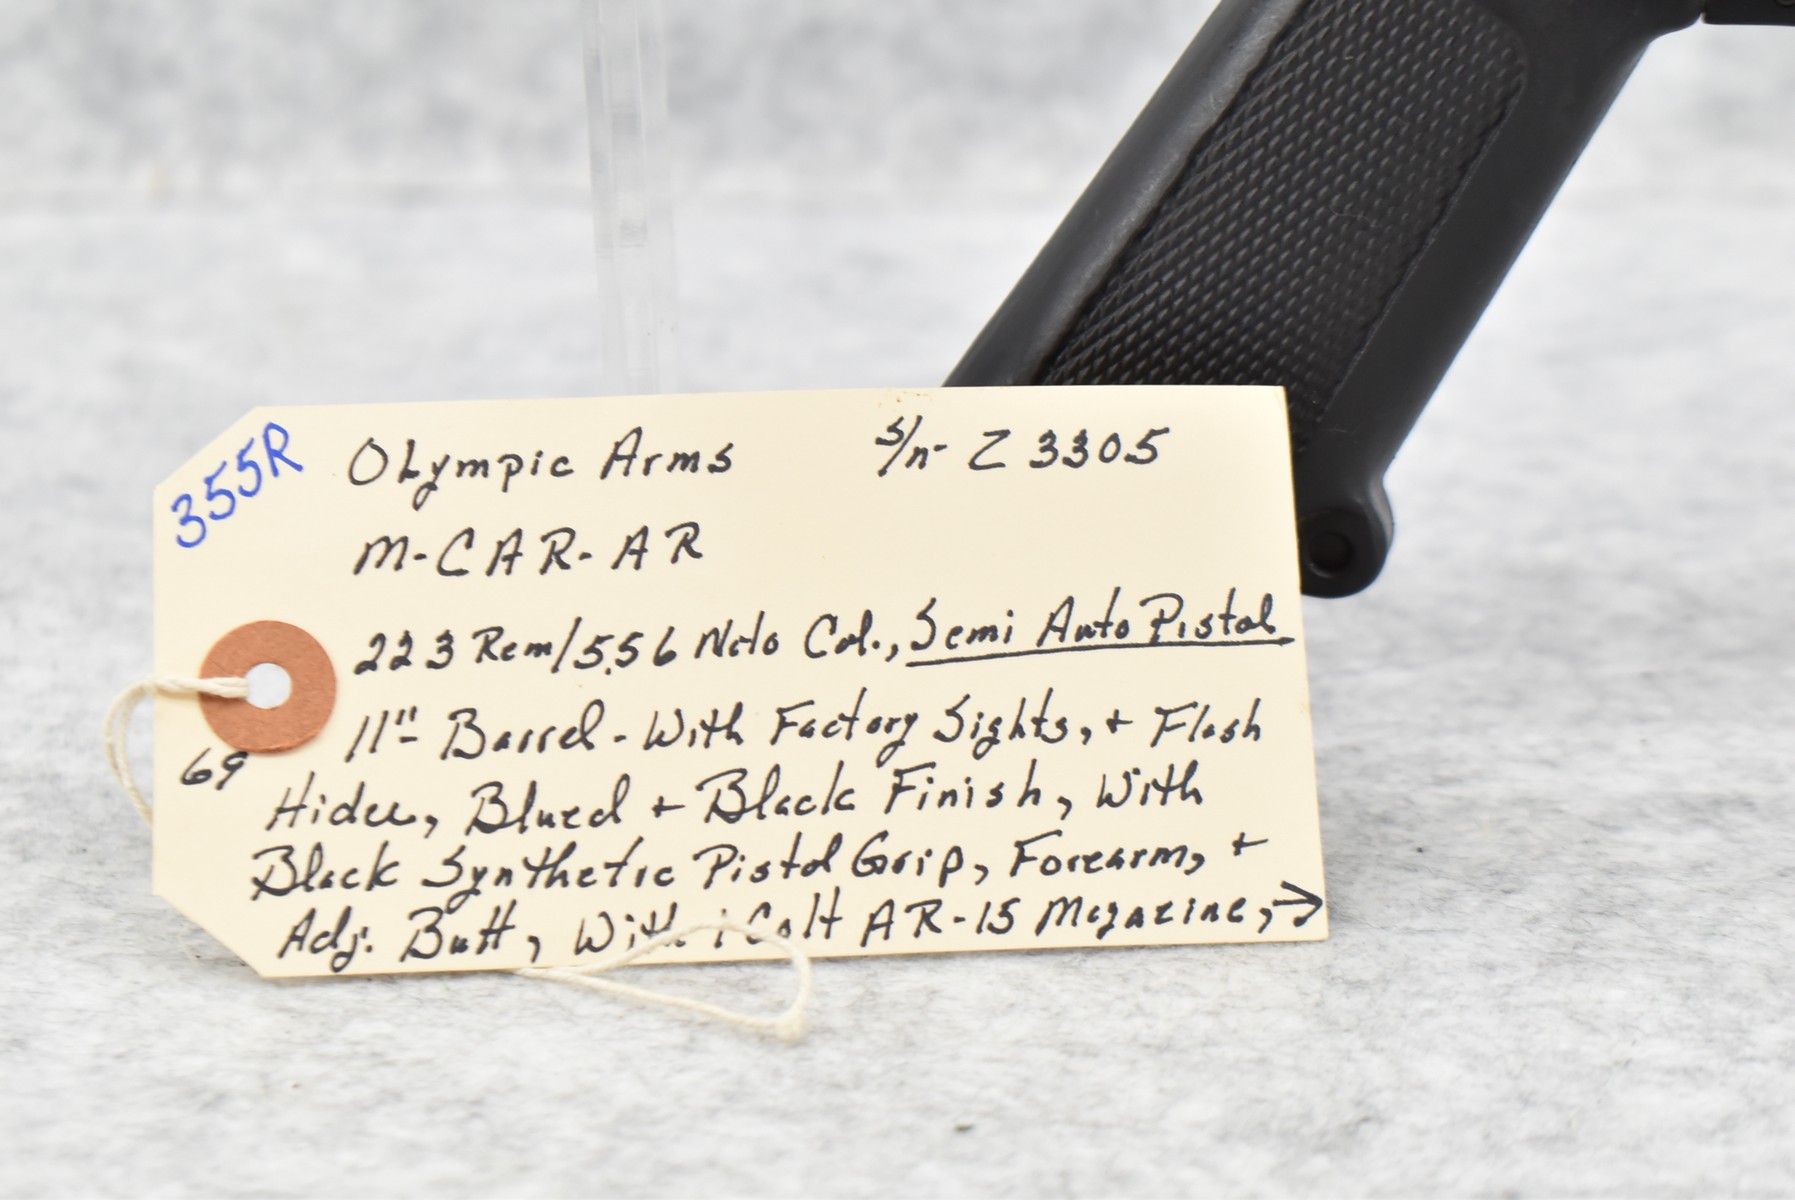 355R
Olympic Arms s/n- Z3305
M-CAR-AR
223 Rem/5.56 Nato Cal., Semi Auto Pistol
11" Barrel - With Factory Sights, + Flash
69
Hider, Blued + Black Finish, With
Black Synthetic Pistol Grip, Forearm, +
Adj. Butt, With 1 Colt AR-15 Magazine, →